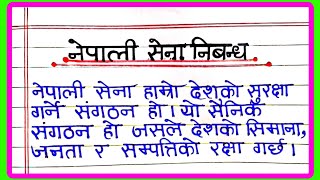 नेपाली सेना निबन्ध
नेपाली सेना हाम्रो देशको सुरक्षा
गर्ने संगठन हो। यो सैनिक
संगठन हो जसले देशको सिमाना,
जनता र सम्पत्तिको रक्षा गर्छ।